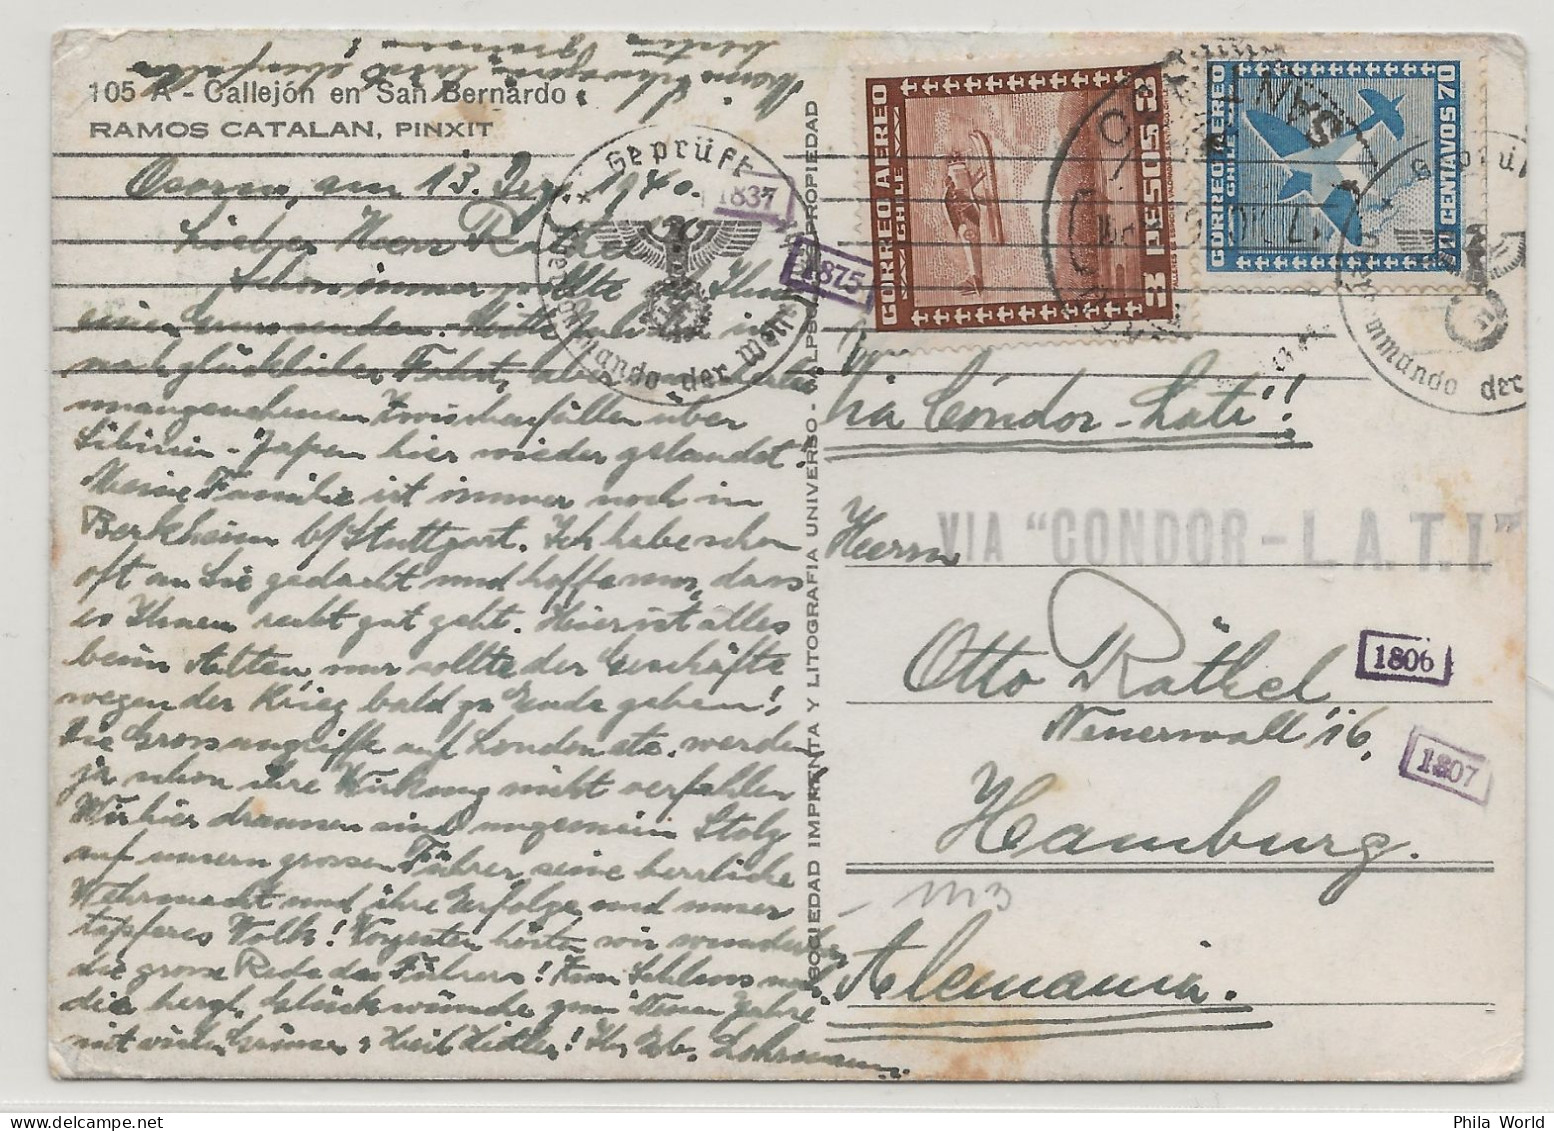 105 A - Callejón en San Bernardo
RAMOS CATALAN, PINXIT
Osorno, am 13. Dez. 1940.
Lieber Herr Räthel
Schon immer wollte ich Ihnen
einen Gruss senden. Mitte Juli bin ich
nach glücklicher Fahrt, aber
unangenehmen Zwischenfällen über
Sibirien - Japan hier wieder gelandet!
Meine Familie ist immer noch in
Berkheim b/Stuttgart. Ich habe schon
oft an Sie gedacht und hoffe nur, dass
es Ihnen recht gut geht. Hier ist alles
beim Alten, nur sollte der Geschäfte
wegen der Krieg bald zu Ende gehen!
Die Grossangriffe auf London etc. werden
ja schon ihre Wirkung nicht verfehlen
Wir hier draussen sind ungemein Stolz
auf unsern grossen Führer, seine herrliche
Wehrmacht und ihre Erfolge und unser
tapferes Volk! Vorgestern hörten wir wunderbar
die grosse Rede des Führers! Zum Schluss noch
die herzl. Glückwünsche zum Neuen Jahre
mit vielen Grüssen & Heil Hitler! Ihr Gb. Lohrmann.
SOCIEDAD IMPRENTA Y LITOGRAFIA UNIVERSO - VALPSO. PROPIEDAD
Geprüft
Oberkommando der Wehrmacht
1837
1875
CORREO AEREO
CHILE
3 PESOS 3
CORREO AEREO
CHILE
70 CENTAVOS 70
SANTIAGO
Geprüft
Oberkommando der
Via Cóndor-Lati!!
VIA "CONDOR - L.A.T.I."
Herrn
Otto Räthel
Neuerwall 16,
Hamburg.
Alemania.
1806
1807
Phila World